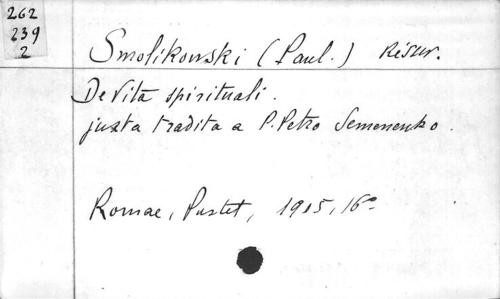 262
239
2
Smolikowski (Paul.) Résur.
De Vita spirituali.
juxta tradita a P. Petro Semenenko.
Romae, Pustet, 1915, 16°